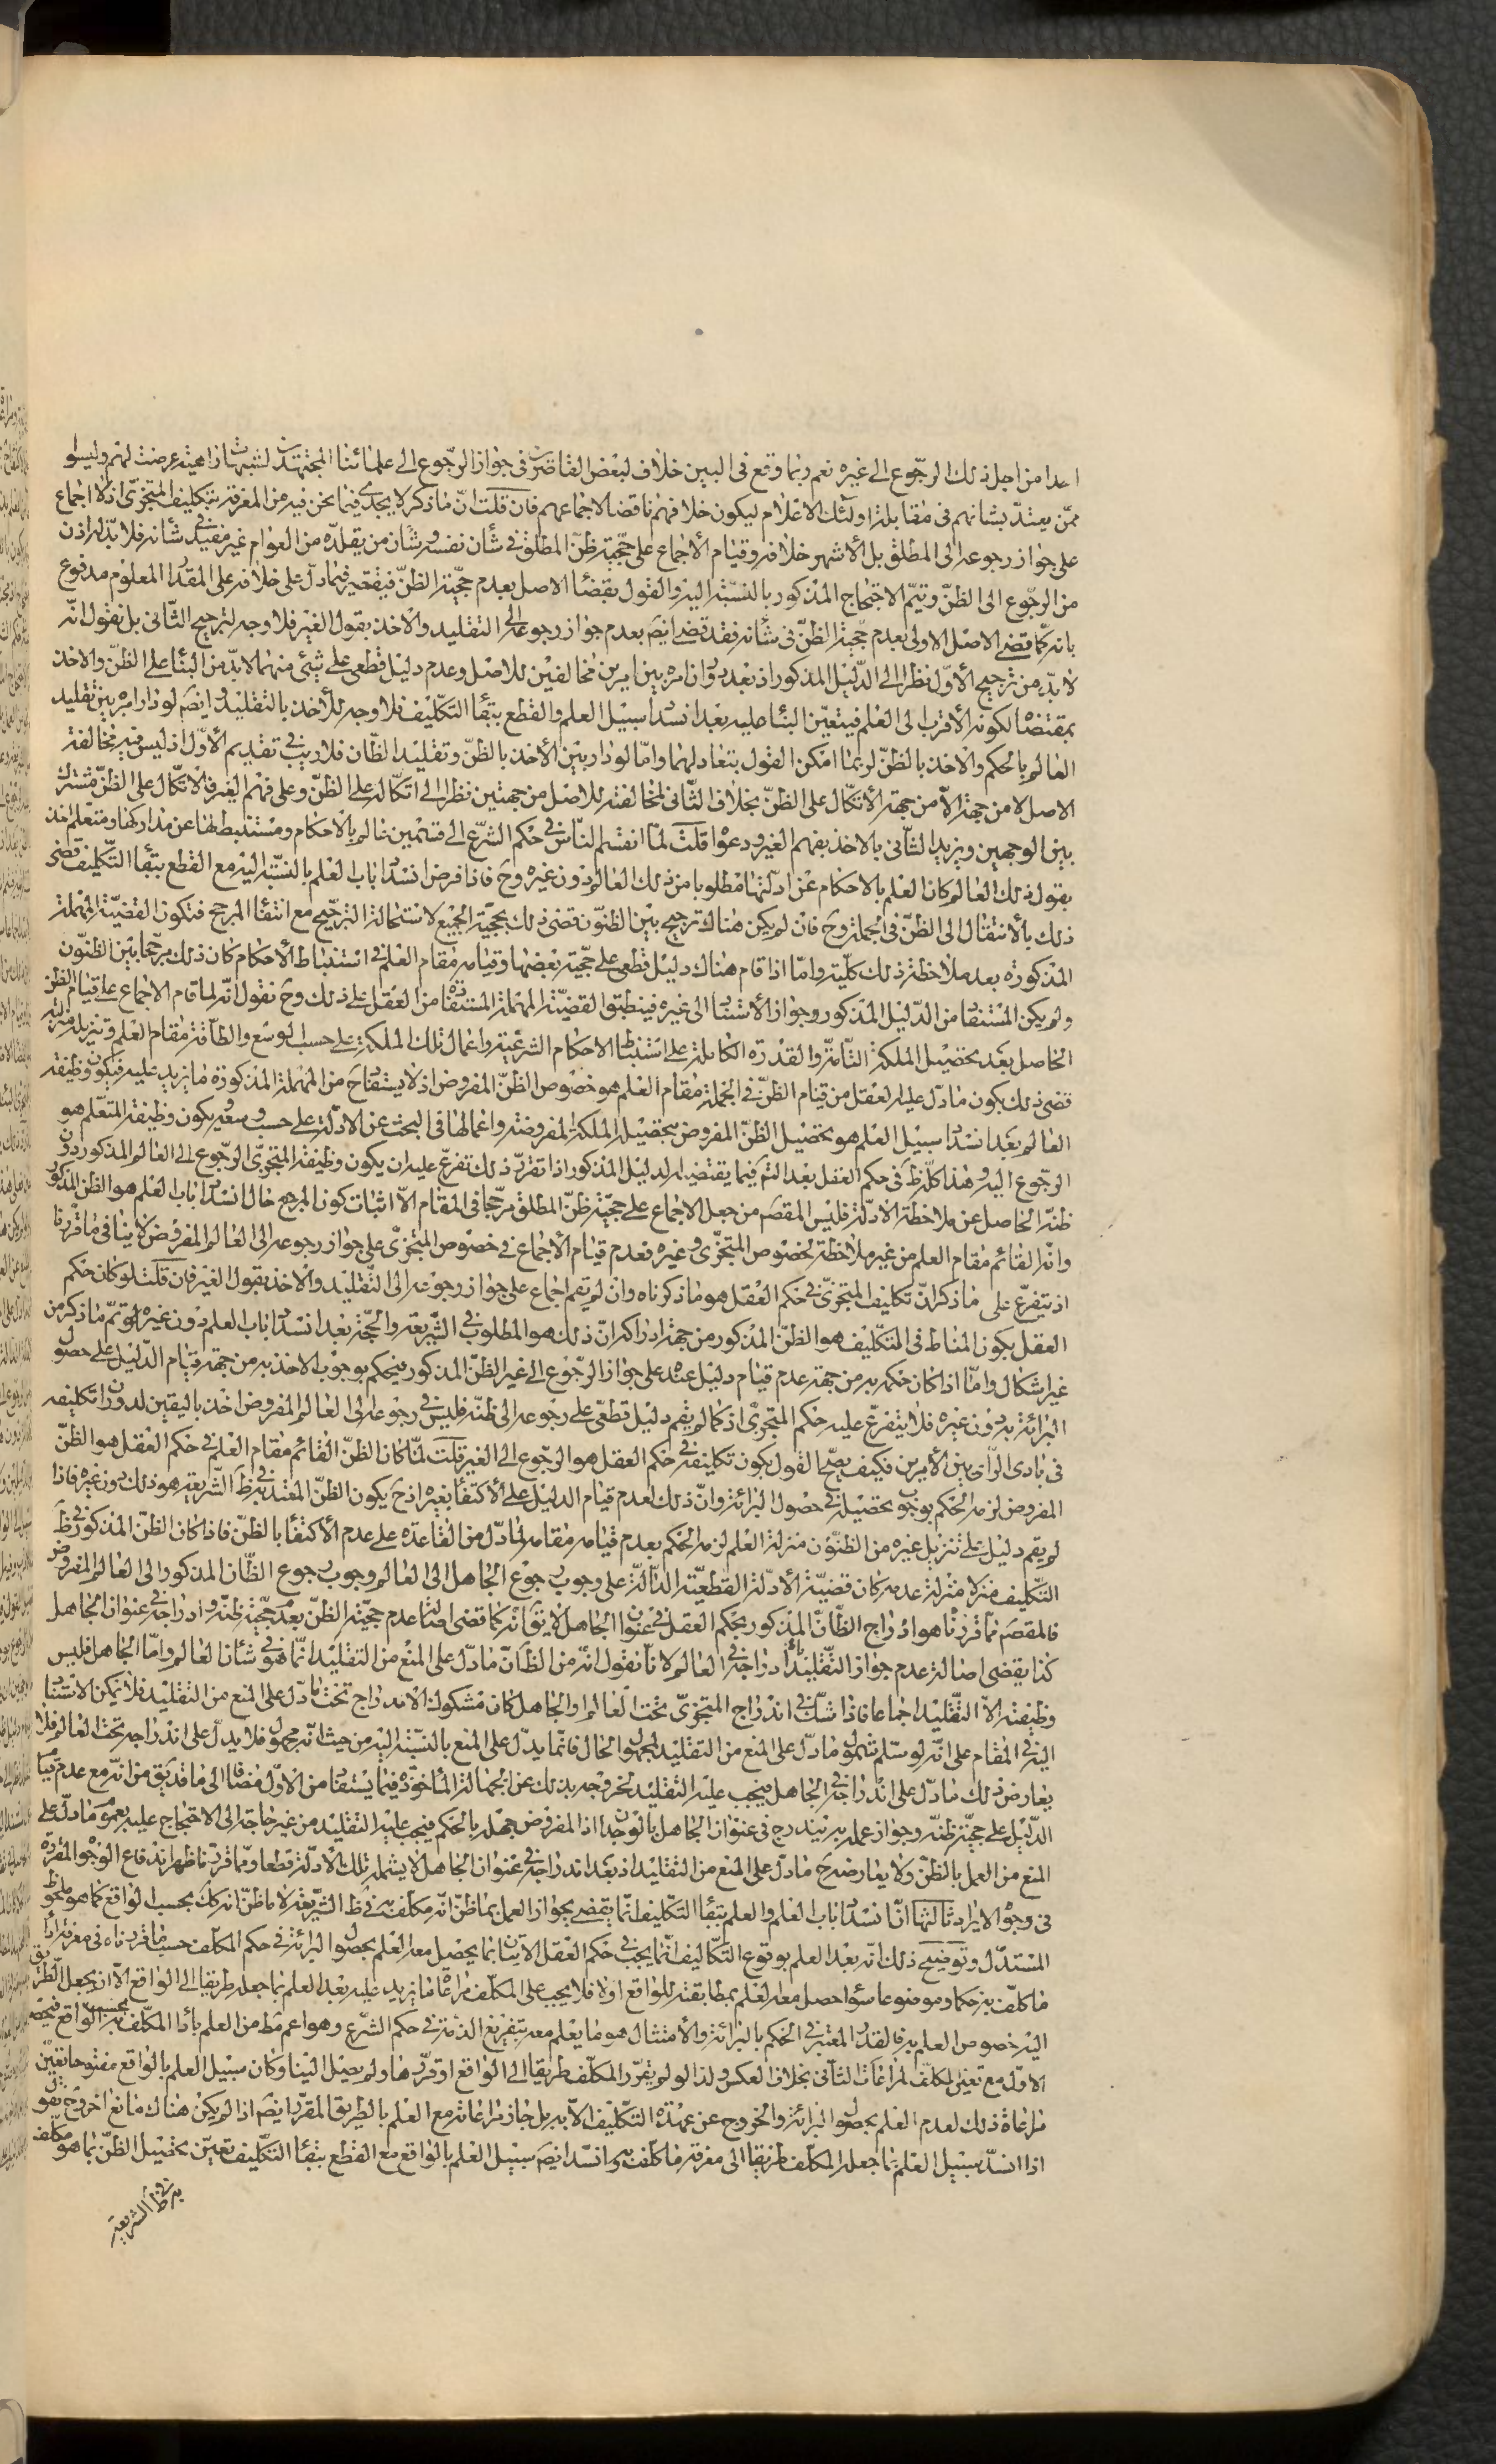 احدا من اجل ذلك الرجوع الى غيره نعم ربما وقع فى البين خلاف لبعض القاصرين فى جواز الرجوع الى علمائنا المجتهدين لشبهات واهية عرضت لهم وليسوا
ممن يعتد بشانهم فى مقابلة اولئك الاعلام ليكون خلافهم ناقضا لاجماعهم فان قلت ان ما ذكر لا يجدى فيما نحن فيه من المعرفة بتكليف المتجزى اذ لا اجماع
على جواز رجوعه الى المطلق بل الاشهر خلافه وقيام الاجماع على حجية ظن المطلق فى شأن نفسه وشأن من يقلده من العوام غير مفيد فى شانه فلا بد له اذن
من الرجوع الى الظن ويتم الاحتجاج المذكور بالنسبة اليه والقول بقضاء الاصل بعدم حجية الظن فيقتصر فيما دل على خلافه على المقدار المعلوم مدفوع
بانه كما قضى الاصل الاولى بعدم حجية الظن فى شأنه فقد قضى ايضا بعدم جواز رجوعه الى التقليد والاخذ بقول الغير فلا وجه لترجيح الثانى بل نقول انه
لا بد من ترجيح الاول نظرا الى الدليل المذكور اذ بعد دوران امره بين امرين مخالفين للاصل وعدم دليل قطعى على شيئ منهما لا بد من البناء على الظن والاخذ
بمقتضاه لكونه الاقرب الى العلم فيتعين البناء عليه بعد انسداد سبيل العلم والقطع ببقاء التكليف فلا وجه للاخذ بالتقليد وايضا لو دار امره بين تقليد
العالم بالحكم والاخذ بالظن لربما امكن القول بتعادلهما واما لو دار بين الاخذ بالظن وتقليد الظان فلا ريب فى تقديم الاول اذ ليس فيه مخالفة
الاصل الا من جهة الاتكال على الظن بخلاف الثانى لمخالفته للاصل من جهتين نظرا الى اتكاله على الظن وعلى فهم الغير فالاتكال على الظن مشترك
بين الوجهين ويزيد الثانى بالاخذ بفهم الغير ودعواه قلت لما انقسم الناس فى حكم الشرع الى قسمين عالم بالاحكام ومستنبط لها عن مداركها ومتعلم اخذ
بقول ذلك العالم كان العلم بالاحكام عن ادلتها مطلوبا من ذلك العالم دون غيره وح فاذا فرض انسداد باب العلم بالنسبة اليه مع القطع ببقاء التكليف قضى
ذلك بالانتقال الى الظن فى الجملة وح فان لم يكن هناك ترجيح بين الظنون قضى ذلك بحجية الجميع لاستحالة الترجيح مع انتفاء المرجح فتكون القضية المهملة
المذكورة بعد ملاحظة ذلك كلية واما اذا قام هناك دليل قطعى على حجية بعضها وقيامه مقام العلم فى استنباط الاحكام كان ذلك مرجحا بين الظنون
ولم يكن المستفاد من الدليل المذكور وجواز الاستناد الى غيره فينطبق القضية المهملة المستفادة من العقل على ذلك وح نقول انه لما قام الاجماع على قيام الظن
الحاصل بعد تحصيل الملكة التامة والقدرة الكاملة على استنباط الاحكام الشرعية واعمال تلك الملكة على حسب الوسع والطاقة مقام العلم وتنزيله منزلته
قضى ذلك بكون ما دل عليه العقل من قيام الظن فى الجملة مقام العلم هو خصوص الظن المفروض اذ لا يستفاد ح من المهملة المذكورة ما يزيد عليه فيكون وظيفة
العالم بعد انسداد سبيل العلم هو تحصيل الظن المفروض بتحصيل الملكة المفروضة واعمالها فى البحث عن الادلة على حسب وسعه ويكون وظيفة المتعلم هو
الرجوع اليه وهذا كله ظ فى حكم العقل بعد التم فيما يقتضيه الدليل المذكور اذا تقرر ذلك تفرع عليه ان يكون وظيفة المتجزى الرجوع الى العالم المذكور دون
ظنه الحاصل عن ملاحظة الادلة فليس المقصم من جعل الاجماع على حجية ظن المطلق مرجحا فى المقام الا اثبات كون المرجع حال انسداد باب العلم هو الظن المذكور
وانه القائم مقام العلم من غير ملاحظة لخصوص المتجزى وغيره فعدم قيام الاجماع فى خصوص المتجزى على جواز رجوعه الى العالم المفروض لا ينافى ما قررنا
اذ يتفرع على ما ذكر ان تكليف المتجزى فى حكم العقل هو ما ذكرناه وان لم يقم اجماع على جواز رجوعه الى التقليد والاخذ بقول الغير فان قلت لو كان حكم
العقل بكون المناط فى التكليف هو الظن المذكور من جهة ادراكه ان ذلك هو المطلوب فى الشريعة والحجة بعد انسداد باب العلم دون غيره لتم ما ذكر من
غير اشكال واما اذا كان حكمه به من جهة عدم قيام دليل عنده على جواز الرجوع الى غير الظن المذكور فيحكم بوجوب الاخذ به من جهة قيام الدليل على حصول
البرائة به دون غيره فلا يتفرع عليه حكم المتجزى اذ كما لم يقم دليل قطعى على رجوعه الى ظنه فليس فى رجوعه الى العالم المفروض اخذ باليقين لدوران تكليفه
فى بادى الرأى بين الامرين فكيف يصح القول بكون تكليفه فى حكم العقل هو الرجوع الى الغير قلت لما كان الظن القائم مقام العلم فى حكم العقل هو الظن
المفروض لزمه الحكم بوجوب تحصيله فى حصول البرائة وان ذلك لعدم قيام الدليل على الاكتفاء بغيره اذ ح يكون الظن المعتبر فى ظ الشريعة هو ذلك دون غيره فاذا
لم يقم دليل على تنزيل غيره من الظنون منزلة العلم لزمه الحكم بعدم قيامه مقامه لما دل من القاعدة على عدم الاكتفاء بالظن فاذا كان الظن المذكور فى ظ
التكليف منزلا منزلة عدمه كان قضية الادلة القطعية الدالة على وجوب رجوع الجاهل الى العالم وجوب رجوع الظان المذكور الى العالم المفروض
فالمقصم مما قررنا هو ادراج الظان المذكور بحكم العقل فى عنوان الجاهل لا يق انه كما قضى اصالة عدم حجية الظن بعدم حجية ظنه وادراجه فى عنوان الجاهل
كذا يقضى اصالة عدم جواز التقليد بادراجه فى العالم لانا نقول انه من الظان ما دل على المنع من التقليد انما هو فى شأن العالم واما الجاهل فليس
وظيفته الا التقليد اجماعا فاذا شك فى اندراج المتجزى تحت العالم او الجاهل كان مشكوك الاندراج تحت ما دل على المنع من التقليد فلا يمكن الاستناد
اليه فى المقام على انه لو سلم شمول ما دل على المنع من التقليد لمجهول الحال فانما يدل على المنع بالنسبة اليه من حيث انه مجهول فلا يدل على اندراجه تحت العالم فلا
يعارض ذلك ما دل على اندراجه فى الجاهل فيجب عليه التقليد لخروجه بذلك عن الجهالة المأخوذة فيما يستفاد من الاول مضافا الى ما قد يق من انه مع عدم قيام
الدليل على حجية ظنه وجواز عمله به يندرج فى عنوان الجاهل بالوجدان اذ المفروض جهله بالحكم فيجب عليه التقليد من غير حاجة الى الاحتجاج عليه بعموم ما دل على
المنع من العمل بالظن ولا يعارضه ح ما دل على المنع من التقليد اذ بعد اندراجه فى عنوان الجاهل لا يشمله تلك الادلة قطعا ومما قررنا ظهر اندفاع الوجوه المقررة
فى وجوه الايراد ثالثها ان انسداد باب العلم والعلم ببقاء التكليف انما يقضى بجواز العمل بما ظن انه مكلف به فى ظ الشريعة لا ما ظن انه كك بحسب الواقع كما هو ملحوظ
المستدل وتوضيح ذلك انه بعد العلم بوقوع التكاليف انما يجب فى حكم العقل الاتيان بما يحصل معه العلم بحصول البرائة فى حكم المكلف حسبما قررناه فى معرفة اداء
ما كلف به حكما وموضوعا سواء حصل معه العلم بمطابقته للواقع اولا فلا يجب على المكلف مراعاة ما يزيد عليه بعد العلم بما جعله طريقا الى الواقع الا ان يجعل الطريق
اليه خصوص العلم به فالقدر المعتبر فى الحكم بالبرائة والامتثال هو ما يعلم معه بتفريغ الذمة فى حكم الشرع وهو اعم مط من العلم بأداء المكلف به بحسب الواقع فيصح
الاول مع تعين المكلف لمراعات الثانى بخلاف العكس ولذا لو لم يقرر المكلف طريقا الى الواقع او قرر ها ولم يصل الينا وكان سبيل العلم بالواقع مفتوحا تعين
مراعاة ذلك لعدم العلم بحصول البرائة والخروج عن عهدة التكليف الا به بل جاز مراعاته مع العلم بالطريق المقرر ايضا اذا لم يكن هناك مانع اخر وح نقول
اذا انسد سبيل العلم بما جعله المكلف طريقا الى معرفة ما كلف به وانسد ايضا سبيل العلم بالواقع مع القطع ببقاء التكليف تعين تحصيل الظن بما هو مكلف
به فى ظ الشريعة